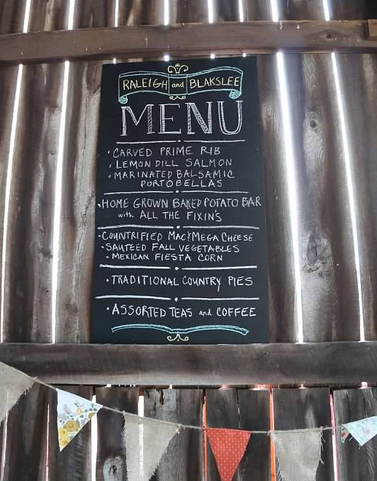 RALEIGH and BLAKSLEE
MENU
• CARVED PRIME RIB
• LEMON DILL SALMON
• MARINATED BALSAMIC
PORTOBELLAS
• HOME GROWN BAKED POTATO BAR
with ALL THE FIXIN'S
• COUNTRIFIED MAC & MEGA CHEESE
• SAUTEED FALL VEGETABLES
• MEXICAN FIESTA CORN
• TRADITIONAL COUNTRY PIES
• ASSORTED TEAS and COFFEE